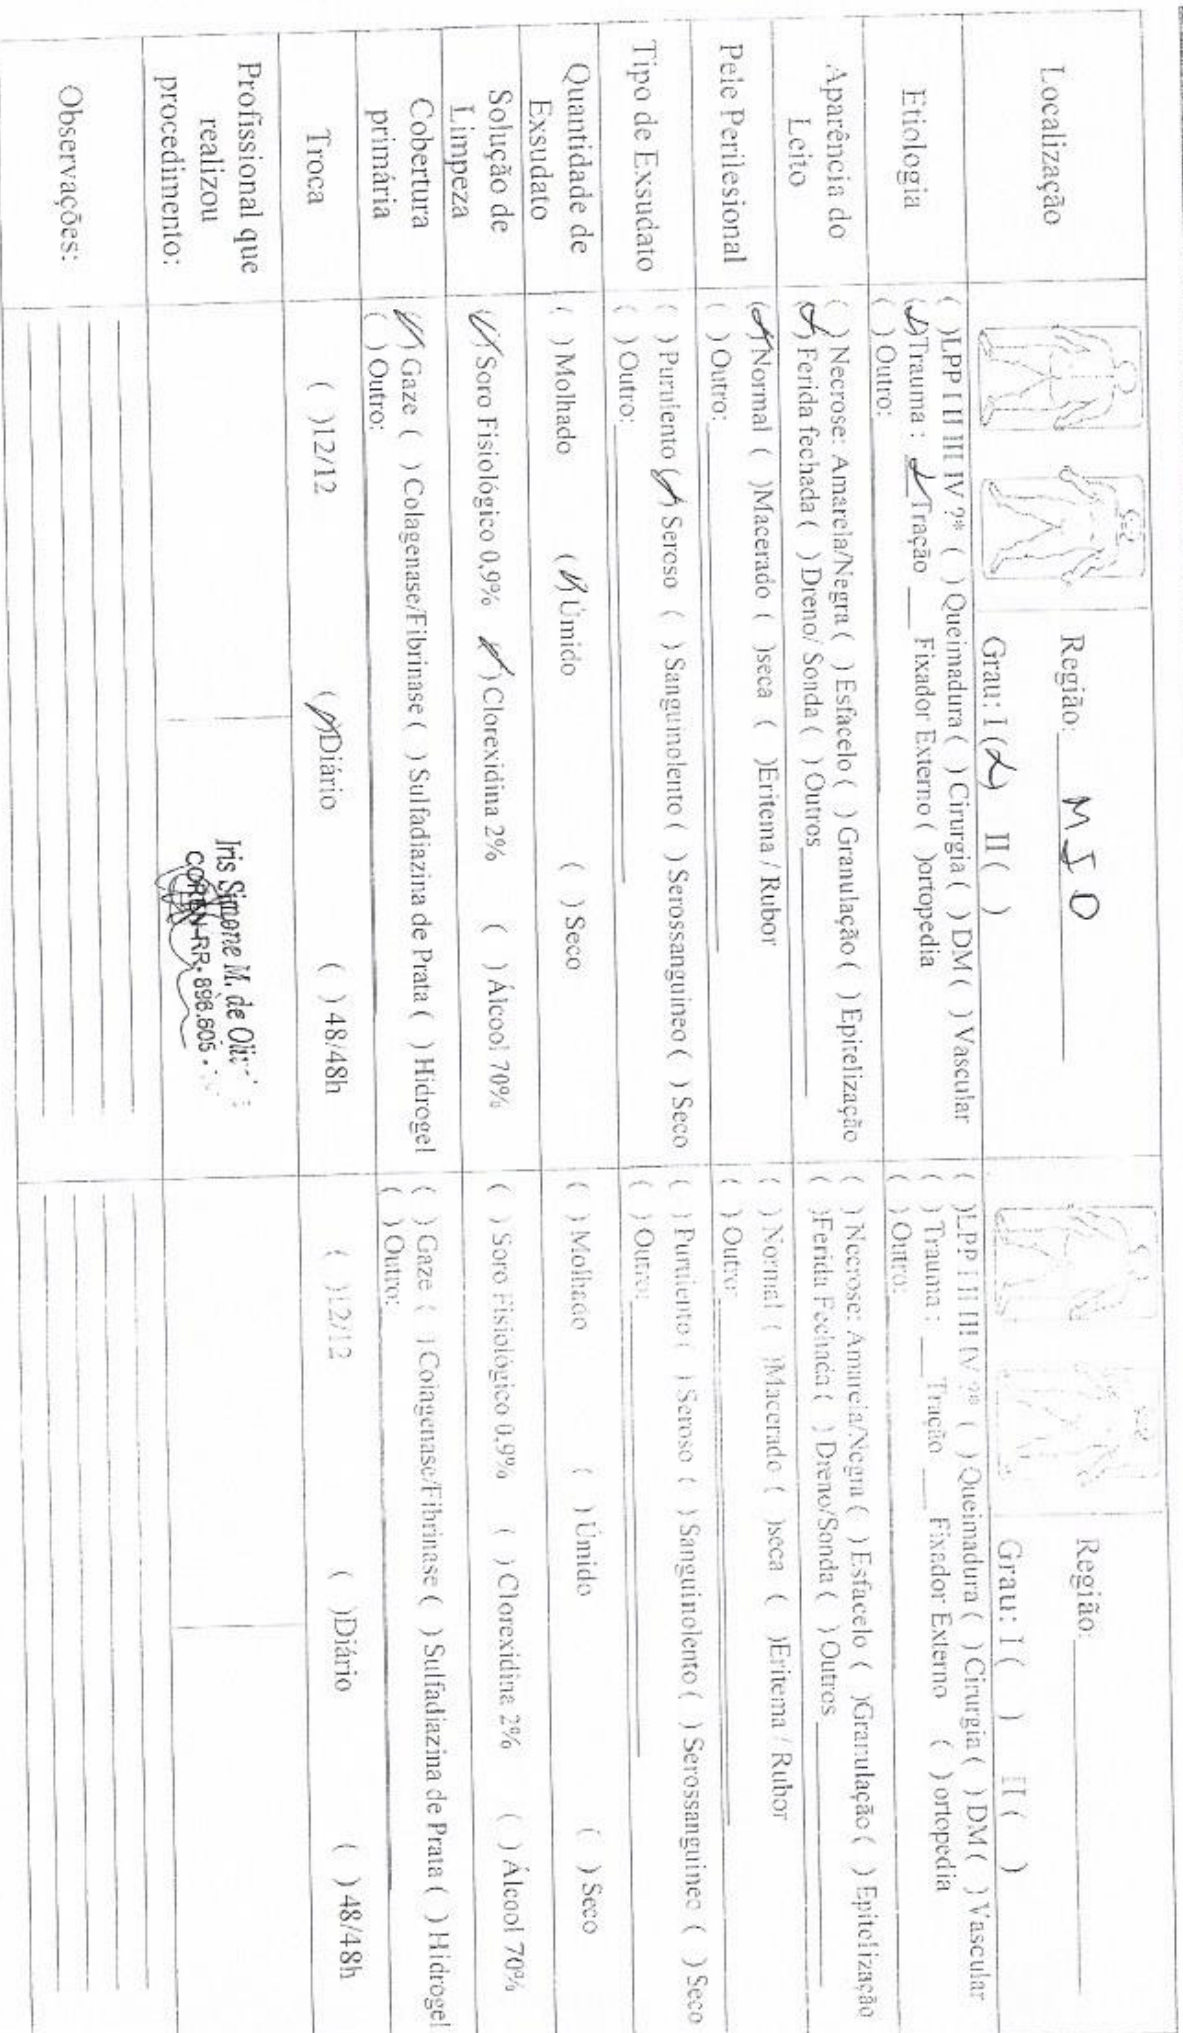 Localização
Região: MID
Grau: I (x) II ( )
Região:
Grau: I ( ) II ( )
Etiologia
( )LPP I II III IV ?* ( ) Queimadura ( ) Cirurgia ( ) DM ( ) Vascular
(x)Trauma : x Tração ___ Fixador Externo ( )ortopedia
( ) Outro:
( )LPP I II III IV ?* ( ) Queimadura ( ) Cirurgia ( ) DM ( ) Vascular
( ) Trauma : ___ Tração ___ Fixador Externo ( ) ortopedia
( ) Outro:
Aparência do
Leito
( ) Necrose: Amarela/Negra ( ) Esfacelo ( ) Granulação ( ) Epitelização
(x) Ferida fechada ( ) Dreno/ Sonda ( ) Outros
( ) Necrose: Amarela/Negra ( ) Esfacelo ( )Granulação ( ) Epitelização
( )Ferida Fechada ( ) Dreno/Sonda ( ) Outros
Pele Perilesional
(x)Normal ( )Macerado ( )seca ( )Eritema / Rubor
( ) Outro:
( ) Normal ( )Macerado ( )seca ( )Eritema / Rubor
( ) Outro:
Tipo de Exsudato
( ) Purulento (x) Seroso ( ) Sanguinolento ( ) Serossanguineo ( ) Seco
( ) Outro:
( ) Purulento ( ) Seroso ( ) Sanguinolento ( ) Serossanguineo ( ) Seco
( ) Outro:
Quantidade de
Exsudato
( ) Molhado (x) Úmido ( ) Seco
( ) Molhado ( ) Úmido ( ) Seco
Solução de
Limpeza
(x) Soro Fisiológico 0,9% (x) Clorexidina 2% ( ) Álcool 70%
( ) Soro Fisiológico 0,9% ( ) Clorexidina 2% ( ) Álcool 70%
Cobertura
primária
(x) Gaze ( ) Colagenase/Fibrinase ( ) Sulfadiazina de Prata ( ) Hidrogel
( ) Outro:
( ) Gaze ( ) Colagenase/Fibrinase ( ) Sulfadiazina de Prata ( ) Hidrogel
( ) Outro:
Troca
( )12/12 (x)Diário ( ) 48/48h
( )12/12 ( )Diário ( ) 48/48h
Profissional que
realizou
procedimento:
Iris Simone M. de
COREN-RR. 896.605
Observações: